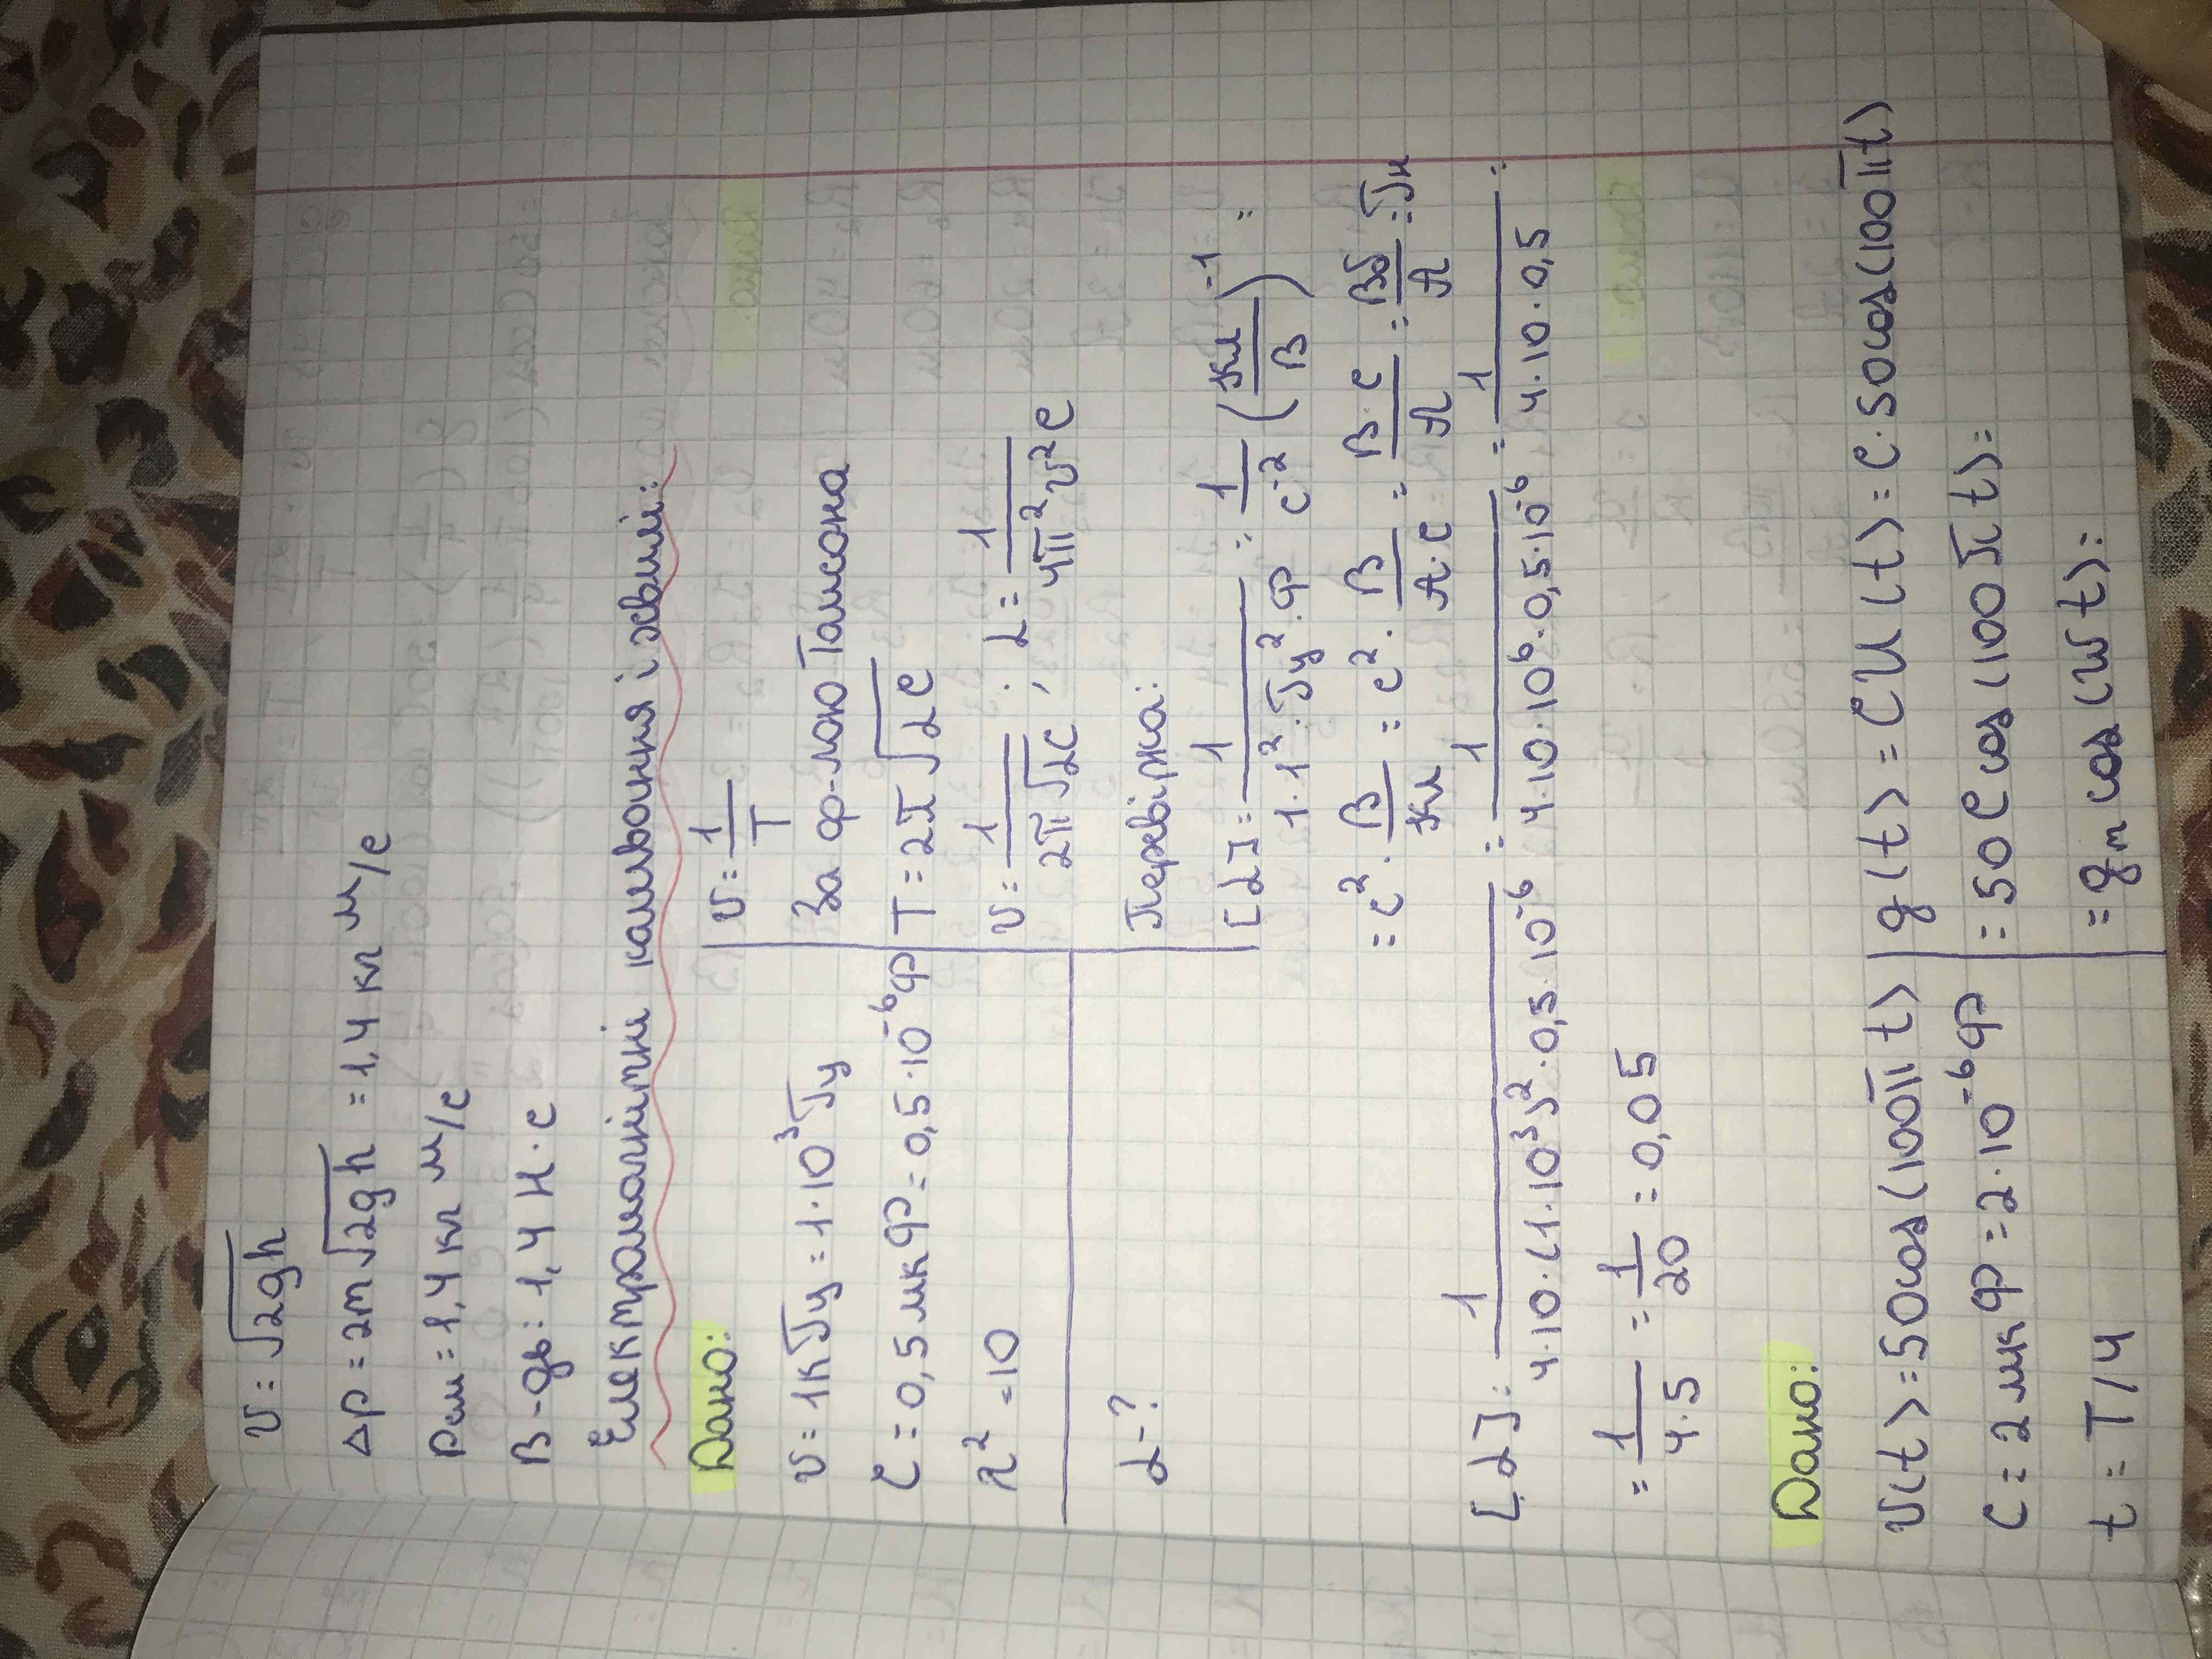 υ = √2gh
Δp = 2m√2gh = 1,4 кг м/с
Pем = 1,4 кг м/с
В-дь: 1,4 Н·с
Електромагнітні коливання і хвилі:
Дано:
υ = 1кГц = 1·10³Гц
C = 0,5 мкФ = 0,5·10⁻⁶Ф
π² = 10
L - ?
υ = 1/T
За ф-лою Томсона
T = 2π√LC
υ = 1/(2π√LC) ; L = 1/(4π²υ²C)
Перевірка:
[L] = 1/(1·1²·Гц²·Ф) = 1/с⁻² (Кл/В)⁻¹ =
= с² · В/Кл = с² · В/(А·с) = В·с/А = Вб/А = Гн
[L] = 1/(4·10·(1·10³)²·0,5·10⁻⁶) = 1/(4·10·10⁶·0,5·10⁻⁶) = 1/(4·10·0,5) =
= 1/(4·5) = 1/20 = 0,05
Дано:
U(t) = 50cos(100πt)
C = 2 мкФ = 2·10⁻⁶Ф
t = T/4
q(t) = CU(t) = C·50cos(100πt)
= 50C cos(100πt) =
= qm cos(ωt) =